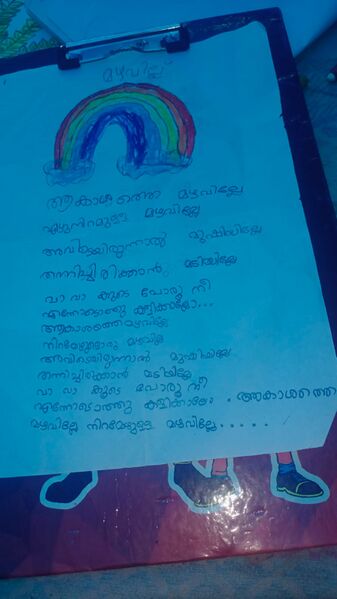 മഴവില്ല്
ആകാശത്തെ മഴവില്ലേ
ഏഴുനിറമുള്ള മഴവില്ലേ
അവിടെയിരുന്നാൽ മുഷിയില്ലേ
തന്നിച്ചിരിക്കാൻ മടിയില്ലേ
വാ വാ കൂടെ പോരൂ നീ
എന്നോടൊത്തു കളിക്കാലോ...
ആകാശത്തെ മഴവില്ലേ
നിറമേഴുള്ളൊരു മഴവില്ലേ
അവിടെയിരുന്നാൽ മുഷിയില്ലേ
തന്നിച്ചിരുക്കാൻ മടിയില്ലേ
വാ വാ കൂടെ പോരൂ നീ
എന്നോടൊത്തു കളിക്കാലോ. ആകാശത്തെ
മഴവില്ലേ നിറമേഴുള്ള മഴവില്ലേ.....